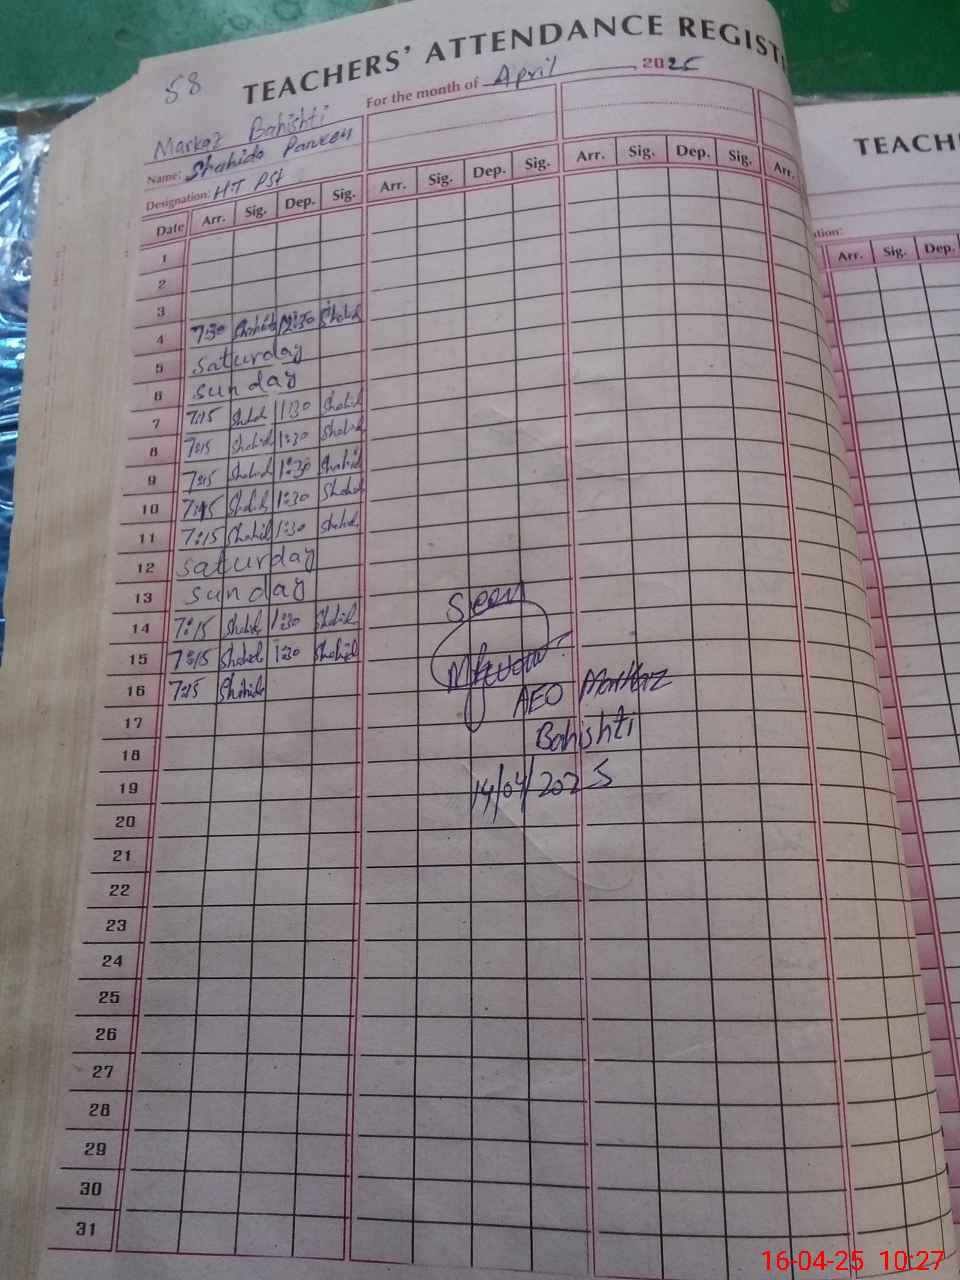 58
TEACHERS' ATTENDANCE REGIST
For the month of April 2025
Markaz Bahishti
Name: Shahida Parveen
Designation: HT PST
Date Arr. Sig. Dep. Sig. Arr. Sig. Dep. Sig. Arr. Sig. Dep. Sig. Arr.
1
2
3
4 7:30 Shahid 12:30 Shahid
5 Saturday
6 Sunday
7 7:15 Shahid 1:30 Shahid
8 7:15 Shahid 1:30 Shahid
9 7:15 Shahid 1:30 Shahid
10 7:15 Shahid 1:30 Shahid
11 7:15 Shahid 1:30 Shahid
12 Saturday
13 Sunday
14 7:15 Shahid 1:30 Shahid
15 7:15 Shahid 1:30 Shahid
16 7:15 Shahida
17
18
19
20
21
22
23
24
25
26
27
28
29
30
31
Seen
AEO Markaz
Bahishti
14/04/2025
TEACH
ation:
Arr. Sig. Dep.
16-04-25 10:27